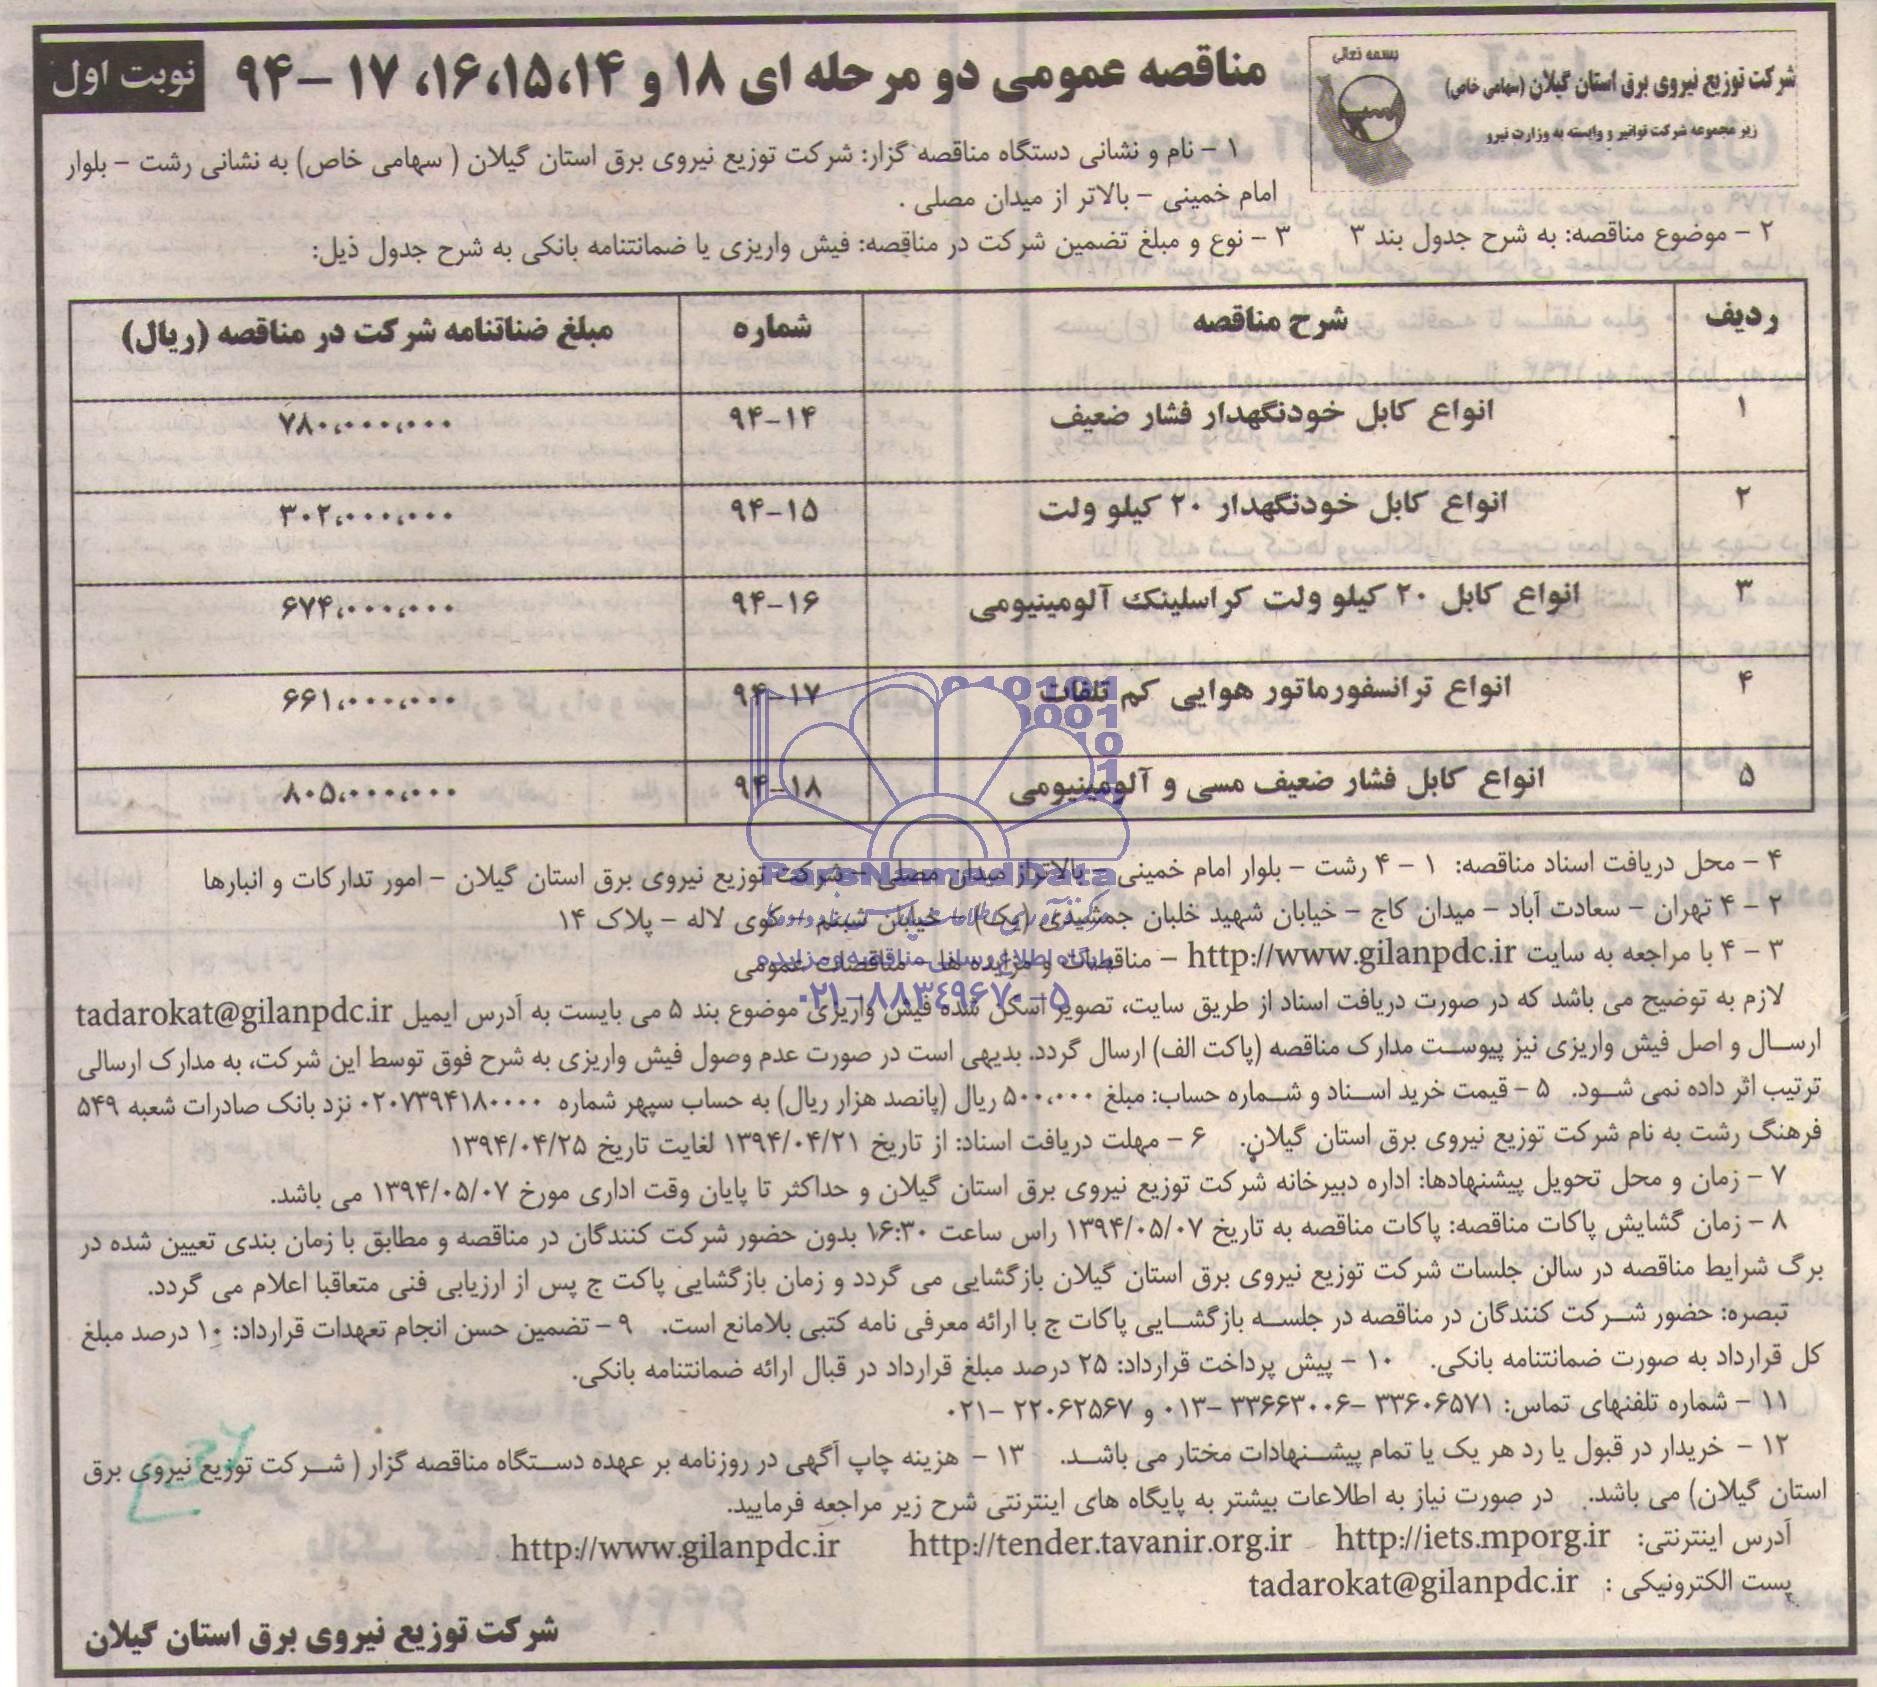 بسمه تعالی
شرکت توزیع نیروی برق استان گیلان (سهامی خاص)
زیر مجموعه شرکت توانیر و وابسته به وزارت نیرو
مناقصه عمومی دو مرحله ای ۱۸ و ۱۴،۱۵،۱۶، ۱۷ -۹۴
نوبت اول
۱ - نام و نشانی دستگاه مناقصه گزار: شرکت توزیع نیروی برق استان گیلان ( سهامی خاص) به نشانی رشت - بلوار
امام خمینی - بالاتر از میدان مصلی .
۲ - موضوع مناقصه: به شرح جدول بند ۳ ۳ - نوع و مبلغ تضمین شرکت در مناقصه: فیش واریزی یا ضمانتنامه بانکی به شرح جدول ذیل:
ردیف شرح مناقصه شماره مبلغ ضناتنامه شرکت در مناقصه (ریال)
۱ انواع کابل خودنگهدار فشار ضعیف ۹۴-۱۴ ۷۸۰،۰۰۰،۰۰۰
۲ انواع کابل خودنگهدار ۲۰ کیلو ولت ۹۴-۱۵ ۳۰۲،۰۰۰،۰۰۰
۳ انواع کابل ۲۰ کیلو ولت کراسلینک آلومینیومی ۹۴-۱۶ ۶۷۴،۰۰۰،۰۰۰
۴ انواع ترانسفورماتور هوایی کم تلفات ۹۴-۱۷ ۶۶۱،۰۰۰،۰۰۰
۵ انواع کابل فشار ضعیف مسی و آلومینیومی ۹۴-۱۸ ۸۰۵،۰۰۰،۰۰۰
۴ - محل دریافت اسناد مناقصه: ۱ - ۴ رشت - بلوار امام خمینی - بالاتراز میدان مصلی - شرکت توزیع نیروی برق استان گیلان - امور تدارکات و انبارها
۲ - ۴ تهران - سعادت آباد - میدان کاج - خیابان شهید خلبان جمشیدی (یکم) - خیابان شبنم - کوی لاله - پلاک ۱۴
۳ - ۴ با مراجعه به سایت http://www.gilanpdc.ir - مناقصات و مزایده ها - مناقصات عمومی
لازم به توضیح می باشد که در صورت دریافت اسناد از طریق سایت، تصویر اسکن شده فیش واریزی موضوع بند ۵ می بایست به آدرس ایمیل tadarokat@gilanpdc.ir
ارسال و اصل فیش واریزی نیز پیوست مدارک مناقصه (پاکت الف) ارسال گردد. بدیهی است در صورت عدم وصول فیش واریزی به شرح فوق توسط این شرکت، به مدارک ارسالی
ترتیب اثر داده نمی شود. ۵ - قیمت خرید اسناد و شماره حساب: مبلغ ۵۰۰،۰۰۰ ریال (پانصد هزار ریال) به حساب سپهر شماره ۰۲۰۷۳۹۴۱۸۰۰۰۰ نزد بانک صادرات شعبه ۵۴۹
فرهنگ رشت به نام شرکت توزیع نیروی برق استان گیلان. ۶ - مهلت دریافت اسناد: از تاریخ ۱۳۹۴/۰۴/۲۱ لغایت تاریخ ۱۳۹۴/۰۴/۲۵
۷ - زمان و محل تحویل پیشنهادها: اداره دبیرخانه شرکت توزیع نیروی برق استان گیلان و حداکثر تا پایان وقت اداری مورخ ۱۳۹۴/۰۵/۰۷ می باشد.
۸ - زمان گشایش پاکات مناقصه: پاکات مناقصه به تاریخ ۱۳۹۴/۰۵/۰۷ راس ساعت ۱۶:۳۰ بدون حضور شرکت کنندگان در مناقصه و مطابق با زمان بندی تعیین شده در
برگ شرایط مناقصه در سالن جلسات شرکت توزیع نیروی برق استان گیلان بازگشایی می گردد و زمان بازگشایی پاکت ج پس از ارزیابی فنی متعاقبا اعلام می گردد.
تبصره: حضور شرکت کنندگان در مناقصه در جلسه بازگشایی پاکات ج با ارائه معرفی نامه کتبی بلامانع است. ۹ - تضمین حسن انجام تعهدات قرارداد: ۱۰ درصد مبلغ
کل قرارداد به صورت ضمانتنامه بانکی. ۱۰ - پیش پرداخت قرارداد: ۲۵ درصد مبلغ قرارداد در قبال ارائه ضمانتنامه بانکی.
۱۱ - شماره تلفنهای تماس: ۳۳۶۰۶۵۷۱ -۳۳۶۶۳۰۰۶ -۰۱۳ و ۲۲۰۶۲۵۶۷ -۰۲۱
۱۲ - خریدار در قبول یا رد هر یک یا تمام پیشنهادات مختار می باشد. ۱۳ - هزینه چاپ آگهی در روزنامه بر عهده دستگاه مناقصه گزار ( شرکت توزیع نیروی برق
استان گیلان) می باشد. در صورت نیاز به اطلاعات بیشتر به پایگاه های اینترنتی شرح زیر مراجعه فرمایید.
آدرس اینترنتی: http://iets.mporg.ir http://tender.tavanir.org.ir http://www.gilanpdc.ir
پست الکترونیکی : tadarokat@gilanpdc.ir
شرکت توزیع نیروی برق استان گیلان
ParsNamadData
پایگاه اطلاع رسانی مناقصه و مزایده
۰۲۱-۸۸۳۴۹۶۷۰-۵